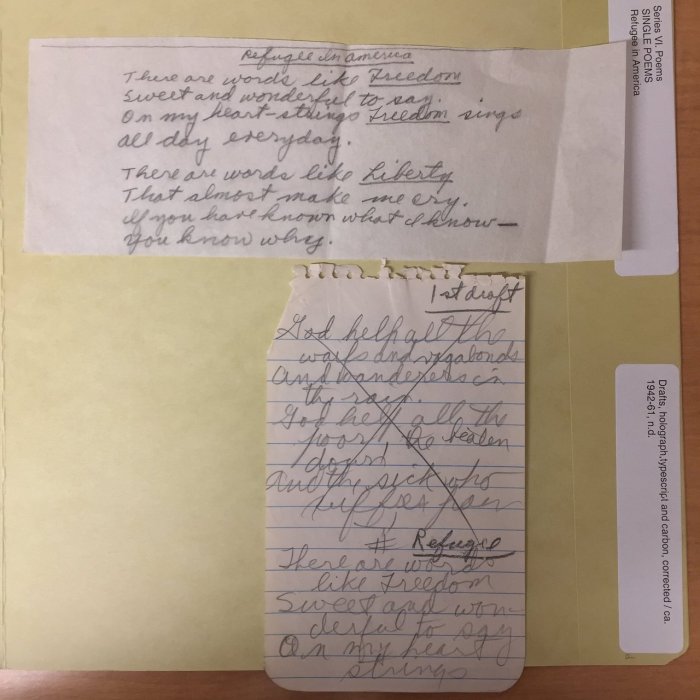 Refugee in America
There are words like Freedom
Sweet and wonderful to say.
On my heart-strings Freedom sings
All day everyday.
There are words like Liberty
That almost make me cry.
If you have known what I know—
You know why.
1st draft
God help all the
waifs and vagabonds
And wanderers in
the rain.
God help all the
poor, the beaten
down,
And the sick who
suffer pain
# Refugee
There are words
like Freedom
Sweet and won-
derful to say
On my heart
strings
Series VI. Poems
SINGLE POEMS
Refugee in America
Drafts, holograph,typescript and carbon, corrected / ca.
1942-61, n.d.